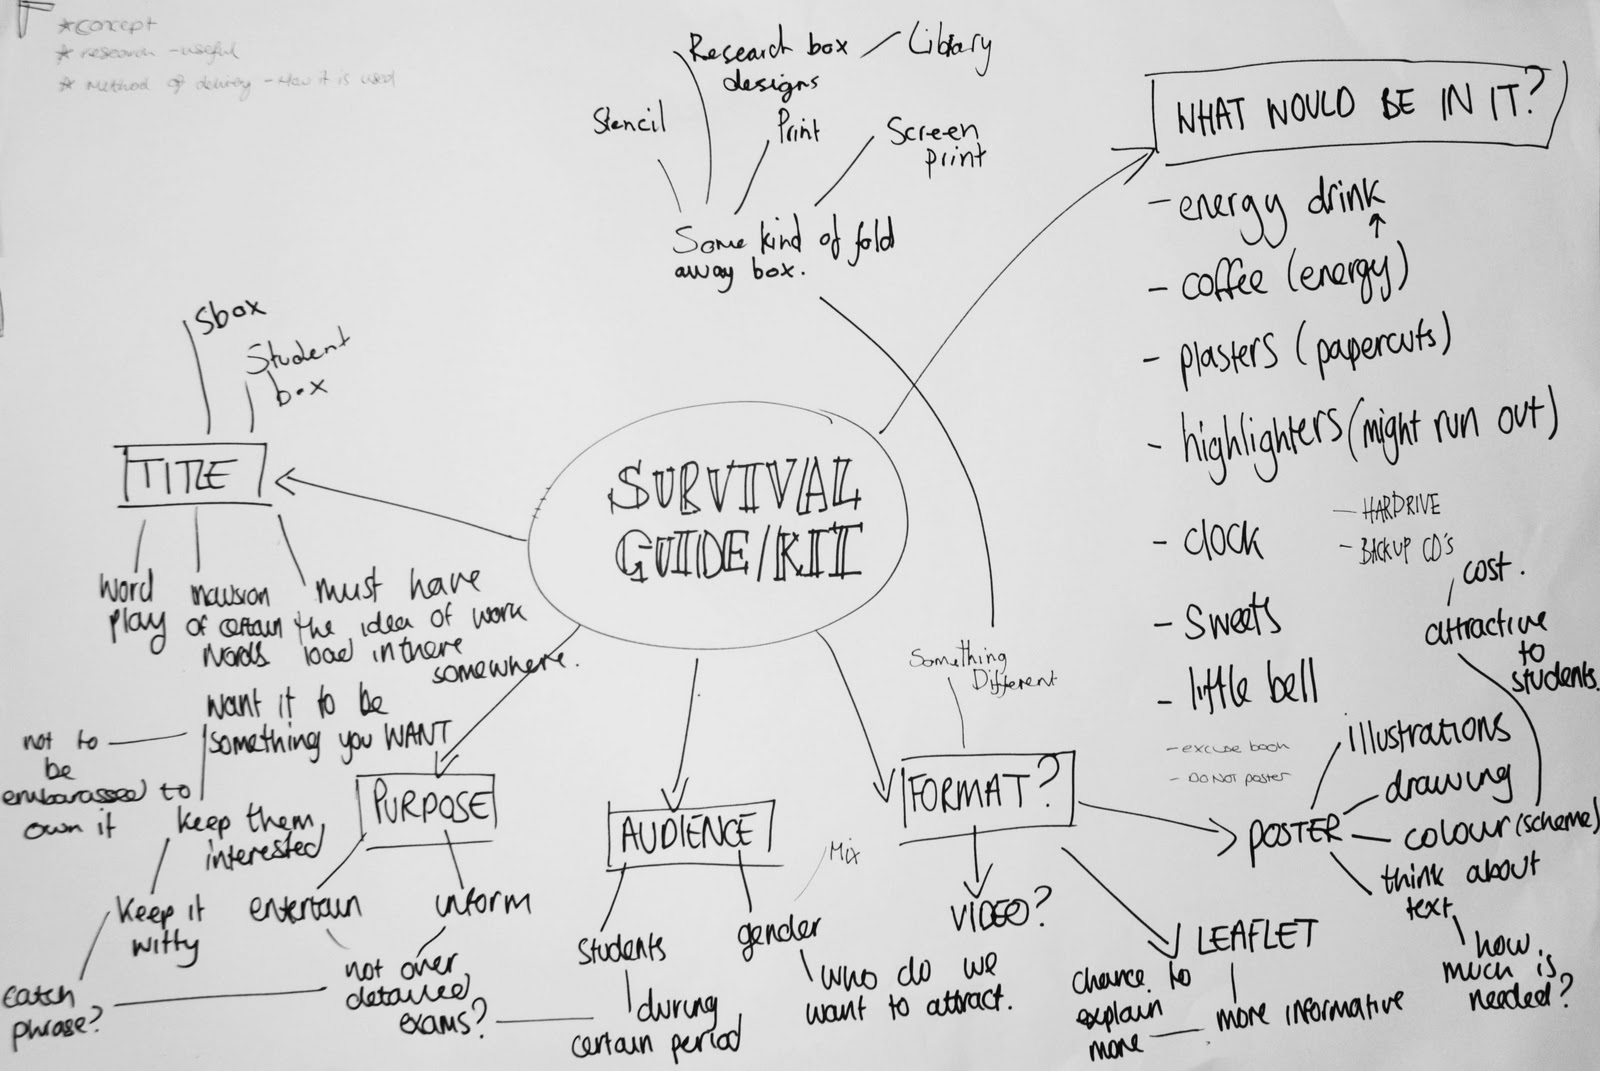 *concept
* research - useful
* method of delivery - How it is used
Research box
designs
Library
Stencil
Print
Screen
print
Some kind of fold
away box.
WHAT WOULD BE IN IT?
- energy drink
- coffee (energy)
- plasters (papercuts)
- highlighters (might run out)
- clock
- HARDRIVE
- BACKUP CD's
- sweets
- little bell
- excuse book
- DO NOT poster
Sbox
Student
box
TITLE
word
play
inclusion
of certain
words
must have
the idea of work
load in there
somewhere.
SURVIVAL
GUIDE/KIT
want it to be
something you WANT
not to
be
embarassed to
own it
keep them
interested
keep it
witty
catch
phrase?
PURPOSE
entertain
inform
not over
detailed
exams?
AUDIENCE
students
during
certain period
gender
Mix
who do we
want to attract.
Something
Different
FORMAT?
VIDEO?
LEAFLET
more informative
chance to
explain
more
POSTER
illustrations
drawing
colour (scheme)
attractive
to
students.
cost.
think about
text
how
much is
needed?